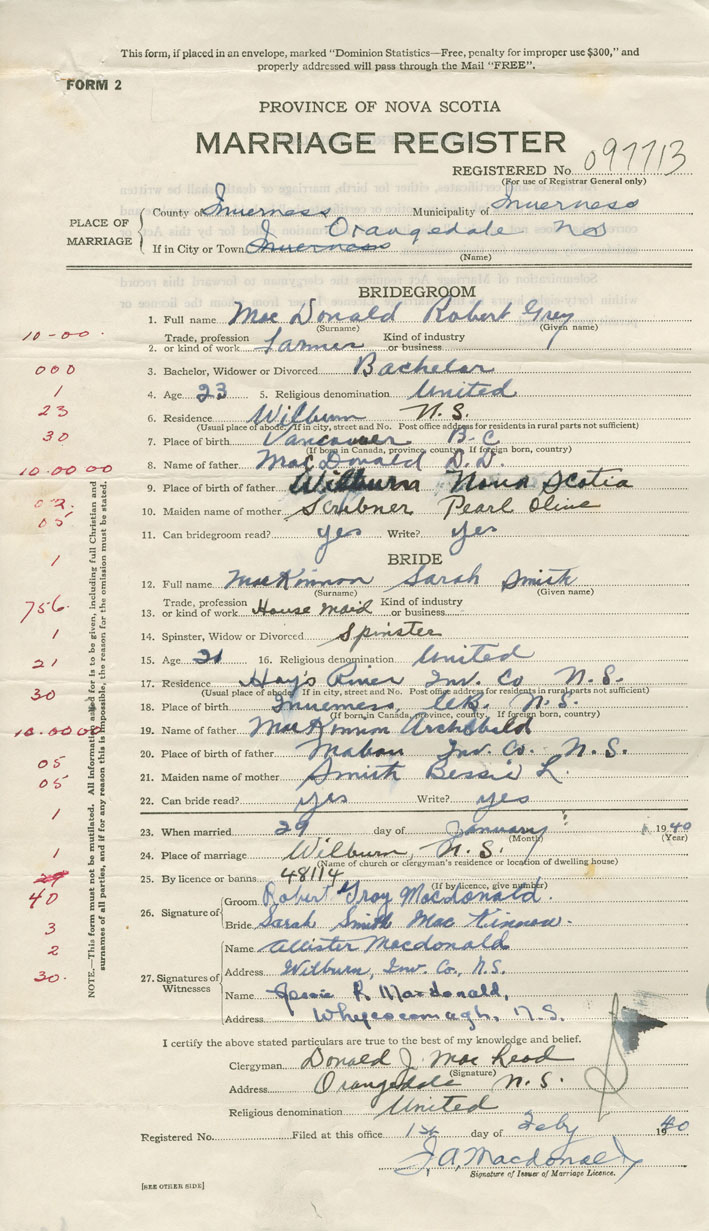 This form, if placed in an envelope, marked "Dominion Statistics—Free, penalty for improper use $300," and
properly addressed will pass through the Mail "FREE".
FORM 2
PROVINCE OF NOVA SCOTIA
MARRIAGE REGISTER
REGISTERED No. 097713
(For use of Registrar General only)
PLACE OF MARRIAGE
County of Inverness Municipality of Inverness
If in City or Town Inverness Orangedale NS
(Name)
BRIDEGROOM
1. Full name Mac Donald Robert Grey
(Surname) (Given name)
2. Trade, profession or kind of work Farmer Kind of industry or business
3. Bachelor, Widower or Divorced Bachelor
4. Age 23 5. Religious denomination United
6. Residence Wilburn N.S.
(Usual place of abode. If in city, street and No. Post office address for residents in rural parts not sufficient)
7. Place of birth Vancouver B.C
(If born in Canada, province, county. If foreign born, country)
8. Name of father MacDonald D.D.
9. Place of birth of father Wilburn Nova Scotia
10. Maiden name of mother Scribner Pearl Olive
11. Can bridegroom read? yes Write? yes
BRIDE
12. Full name MacKinnon Sarah Smith
(Surname) (Given name)
13. Trade, profession or kind of work House Maid Kind of industry or business
14. Spinster, Widow or Divorced Spinster
15. Age 21 16. Religious denomination United
17. Residence Hay's River Inv. Co N.S.
(Usual place of abode. If in city, street and No. Post office address for residents in rural parts not sufficient)
18. Place of birth Inverness, N.S.
(If born in Canada, province, county. If foreign born, country)
19. Name of father MacKinnon Archibald
20. Place of birth of father Mabou Inv. Co. N.S.
21. Maiden name of mother Smith Bessie L.
22. Can bride read? yes Write? yes
23. When married 29 day of January 1940
(Month) (Year)
24. Place of marriage Wilburn, N.S.
(Name of church or clergyman's residence or location of dwelling house)
25. By licence or banns 48114
(If by licence, give number)
26. Signature of
Groom Robert Gray Macdonald.
Bride Sarah Smith Mac Kinnon.
27. Signatures of Witnesses
Name Allister Macdonald
Address Wilburn, Inv. Co, N.S.
Name Jessie R. Macdonald,
Address Whycocomagh, N.S.
I certify the above stated particulars are true to the best of my knowledge and belief.
Clergyman Donald J. Mac Leod
(Signature)
Address Orangedale N.S.
Religious denomination United
Registered No. Filed at this office 1st day of Feby 1940
J. A. Macdonald
Signature of Issuer of Marriage Licence.
[SEE OTHER SIDE]
NOTE.—This form must not be mutilated. All information asked for is to be given, including full Christian and
surnames of all parties, and if for any reason this is impossible, the reason for the omission must be stated.
10-00.
000
1
23
30
10.00 00
05
1
756.
1
21
30
10.0000
05
05
1
1
40
3
2
30.